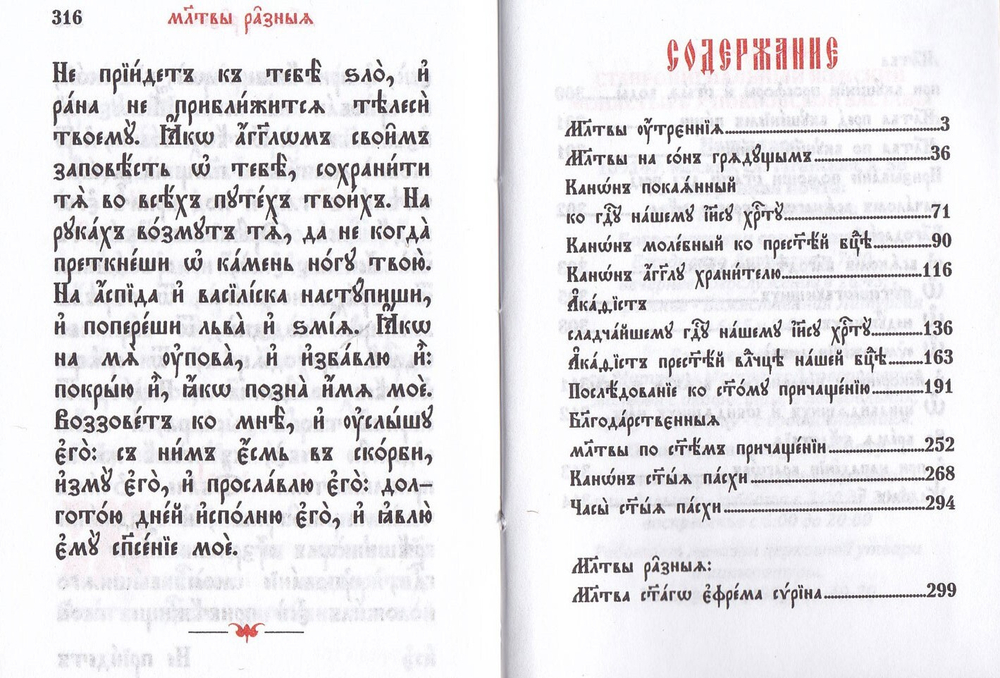 316
мл҃твы ра̑зныѧ
Не прїи́детъ къ тебѣ̀ ѕло̀, и҆
ра́на не прибли́житсѧ тѣлесѝ
твоемꙋ̀. Ꙗ҆́кѡ а҆́гг҃лѡмъ свои̑мъ
заповѣ́сть ѡ҆ тебѣ̀, сохрани́ти
тѧ̀ во всѣ́хъ пꙋте́хъ твои́хъ. На
рꙋка́хъ во́змꙋтъ тѧ̀, да не когда̀
преткне́ши ѡ҆ ка́мень но́гꙋ твою̀.
На а҆́спїда и҆ васїлі́ска настꙋ́пиши,
и҆ попере́ши льва̀ и҆ ѕмі́ѧ. Ꙗ҆́кѡ
на мѧ̀ ᲂу҆пова̀, и҆ и҆зба́влю и҆̀:
покры́ю и҆̀, ꙗ҆́кѡ позна̀ и҆́мѧ моѐ.
Воззове́тъ ко мнѣ̀, и҆ ᲂу҆слы́шꙋ
є҆го̀: съ ни́мъ є҆́смь въ ско́рби,
и҆змꙋ̀ є҆го̀, и҆ просла́влю є҆го̀: дол-
гото́ю дні́й и҆спо́лню є҆го̀, и҆ ꙗ҆влю̀
є҆мꙋ̀ сп҃се́нїе моѐ.
СОДЕРЖАНИЕ
Мл҃твы ᲂу҆́трєннїѧ..........3
Мл҃твы на со́нъ грѧдꙋ́щымъ..........36
Канѡ́нъ покаѧ́нный
ко гдⷭ҇ꙋ на́шемꙋ і҆и҃сꙋ хрⷭ҇тꙋ̀..........71
Канѡ́нъ моле́бный ко прест҃ѣ́й бц҃ѣ..........90
Канѡ́нъ а҆́гг҃лꙋ храни́телю..........116
А҆ка́ѳїстъ
сладча́йшемꙋ гдⷭ҇ꙋ на́шемꙋ і҆и҃сꙋ хрⷭ҇тꙋ̀..........136
А҆ка́ѳїстъ прест҃ѣ́й влⷣчцѣ на́шей бц҃ѣ..........163
Послѣ́дованїе ко ст҃о́мꙋ причаще́нїю..........191
Бл҃года́рственныѧ
мл҃твы по ст҃ѣ́мъ причаще́нїи..........252
Канѡ́нъ ст҃ы́ѧ па́схи..........268
Часы̀ ст҃ы́ѧ па́схи..........294
Мл҃твы ра̑зныѧ:
Мл҃тва ст҃а́гѡ є҆фре́ма сѵ́рїна..........299